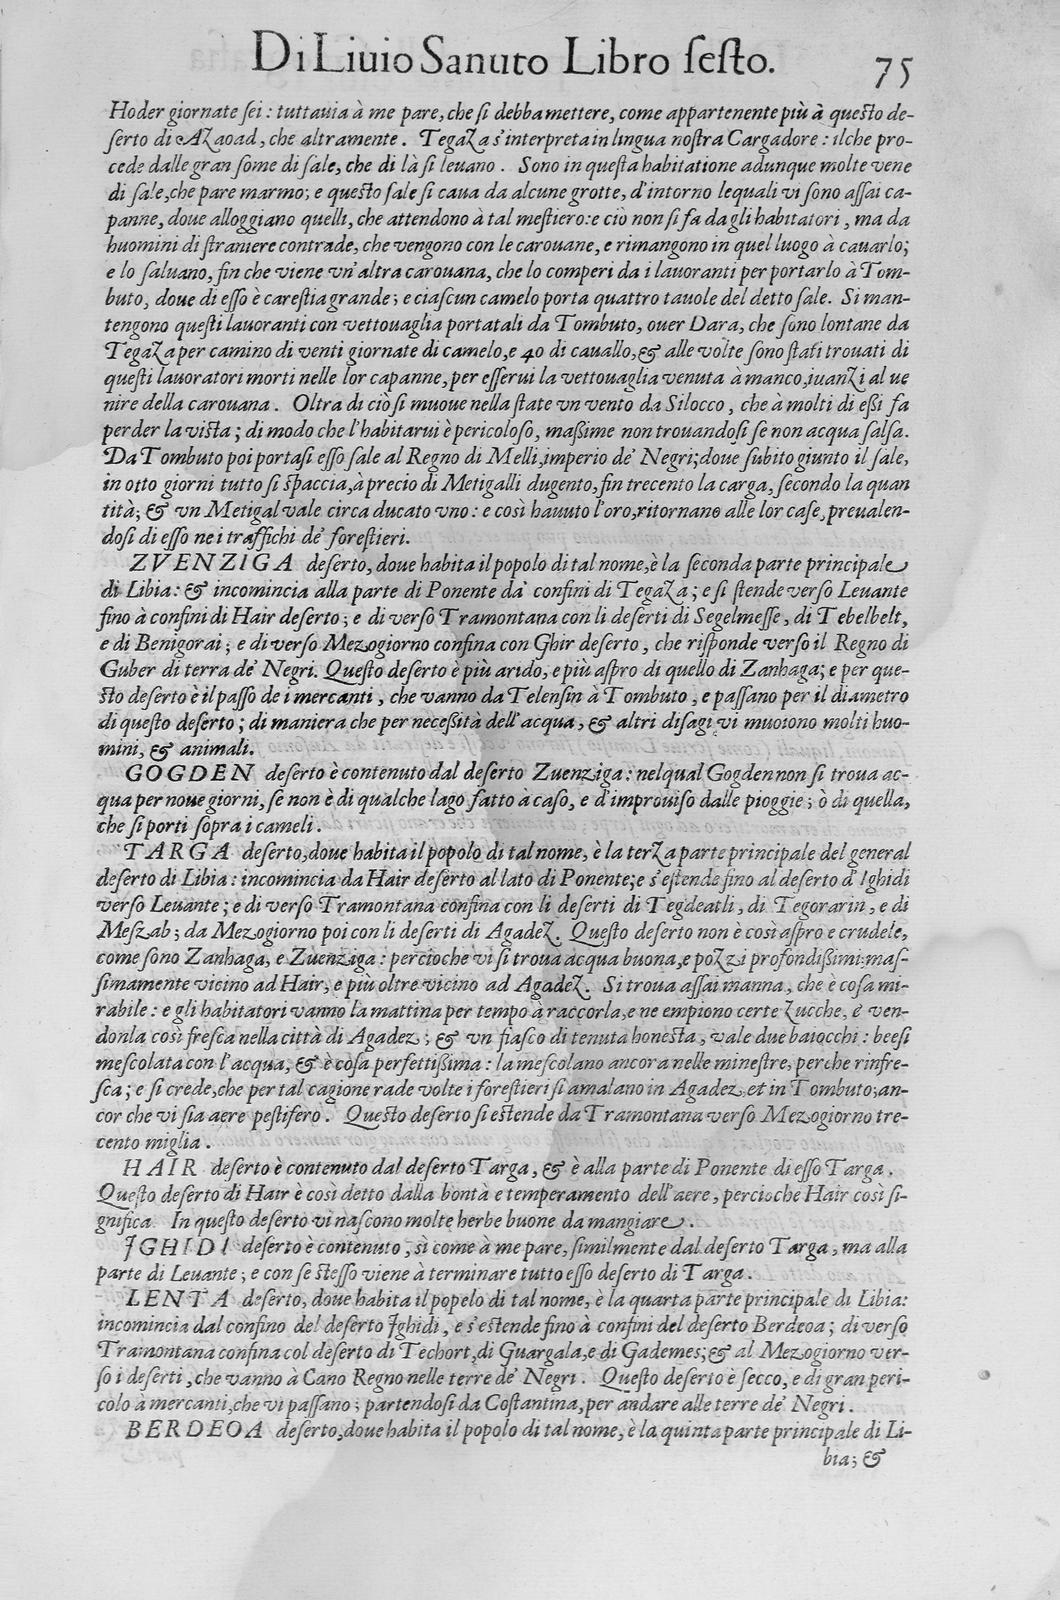 Di Liuio Sanuto Libro ſeſto. 75
Hoder giornate ſei: tuttauia à me pare, che ſi debba mettere, come appartenente più à queſto de-
ſerto di Azaoad, che altramente. Tegaza s'interpreta in lingua noſtra Cargadore: ilche pro-
cede dalle gran ſome di ſale, che di là ſi leuano. Sono in queſta habitatione adunque molte vene
di ſale, che pare marmo; e queſto ſale ſi caua da alcune grotte, d'intorno lequali vi ſono aſſai ca-
panne, doue alloggiano quelli, che attendono à tal meſtiero: e ciò non ſi fa dagli habitatori, ma da
huomini di ſtraniere contrade, che vengono con le carouane, e rimangono in quel luogo à cauarlo;
e lo ſaluano, fin che viene vn'altra carouana, che lo comperi da i lauoranti per portarlo à Tom-
buto, doue di eſſo è careſtia grande; e ciaſcun camelo porta quattro tauole del detto ſale. Si man-
tengono queſti lauoranti con vettouaglia portatali da Tombuto, ouer Dara, che ſono lontane da
Tegaza per camino di venti giornate di camelo, e 40 di cauallo, & alle volte ſono ſtati trouati di
queſti lauoratori morti nelle lor capanne, per eſſerui la vettouaglia venuta à manco, iuanzi al ue
nire della carouana. Oltra di ciò ſi muoue nella ſtate vn vento da Silocco, che à molti di eßi fa
perder la viſta; di modo che l'habitarui è pericoloſo, maßime non trouandoſi ſe non acqua ſalſa.
Da Tombuto poi portaſi eſſo ſale al Regno di Melli, imperio de' Negri; doue ſubito giunto il ſale,
in otto giorni tutto ſi ſpaccia, à precio di Metigalli dugento, fin trecento la carga, ſecondo la quan
tità; & vn Metigal vale circa ducato vno: e così hauuto l'oro, ritornano alle lor caſe, preualen-
doſi di eſſo ne i traffichi de' foreſtieri.
ZVENZIGA deſerto, doue habita il popolo di tal nome, è la ſeconda parte principale
di Libia: & incomincia alla parte di Ponente da' confini di Tegaza; e ſi ſtende verſo Leuante
fino à confini di Hair deſerto; e di verſo Tramontana con li deſerti di Segelmeſſe, di Tebelbelt,
e di Benigorai; e di verſo Mezogiorno confina con Ghir deſerto, che riſponde verſo il Regno di
Guber di terra de' Negri. Queſto deſerto è più arido, e più aſpro di quello di Zanhaga; e per que-
ſto deſerto è il paſſo de i mercanti, che vanno da Telenſin à Tombuto, e paſſano per il diametro
di queſto deſerto; di maniera che per neceßità dell'acqua, & altri diſagi vi muoiono molti huo-
mini, & animali.
GOGDEN deſerto è contenuto dal deſerto Zuenziga: nelqual Gogden non ſi troua ac-
qua per noue giorni, ſe non è di qualche lago fatto à caſo, e d'improuiſo dalle pioggie; ò di quella,
che ſi porti ſopra i cameli.
TARGA deſerto, doue habita il popolo di tal nome, è la terza parte principale del general
deſerto di Libia: incomincia da Hair deſerto al lato di Ponente; e s'eſtende fino al deſerto d'Ighidi
verſo Leuante; e di verſo Tramontana confina con li deſerti di Tegdeatli, di Tegorarin, e di
Meſzab; da Mezogiorno poi con li deſerti di Agadez. Queſto deſerto non è così aſpro e crudele,
come ſono Zanhaga, e Zuenziga: percioche vi ſi troua acqua buona, e pozzi profondißimi: maſ-
ſimamente vicino ad Hair, e più oltre vicino ad Agadez. Si troua aſſai manna, che è coſa mi-
rabile: e gli habitatori vanno la mattina per tempo à raccorla, e ne empiono certe zucche, e ven-
donla così freſca nella città di Agadez; & vn fiaſco di tenuta honeſta, vale due baiocchi: beeſi
meſcolata con l'acqua, & è coſa perfettißima: la meſcolano ancora nelle mineſtre, perche rinfre-
ſca; e ſi crede, che per tal cagione rade volte i foreſtieri ſi amalano in Agadez, et in Tombuto; an-
cor che vi ſia aere peſtifero. Queſto deſerto ſi eſtende da Tramontana verſo Mezogiorno tre-
cento miglia.
HAIR deſerto è contenuto dal deſerto Targa, & è alla parte di Ponente di eſſo Targa.
Queſto deſerto di Hair è così detto dalla bontà e temperamento dell'aere, percioche Hair così ſi-
gnifica. In queſto deſerto vi naſcono molte herbe buone da mangiare.
IGHIDI deſerto è contenuto, sì come à me pare, ſimilmente dal deſerto Targa, ma alla
parte di Leuante; e con ſe ſteſſo viene à terminare tutto eſſo deſerto di Targa.
LENTA deſerto, doue habita il popelo di tal nome, è la quarta parte principale di Libia:
incomincia dal confino del deſerto Ighidi, e s'eſtende fino à confini del deſerto Berdeoa; di verſo
Tramontana confina col deſerto di Techort, di Guargala, e di Gademes; & al Mezogiorno ver-
ſo i deſerti, che vanno à Cano Regno nelle terre de' Negri. Queſto deſerto è ſecco, e di gran peri-
colo à mercanti, che vi paſſano; partendoſi da Coſtantina, per andare alle terre de' Negri.
BERDEOA deſerto, doue habita il popolo di tal nome, è la quinta parte principale di Li-
bia; &